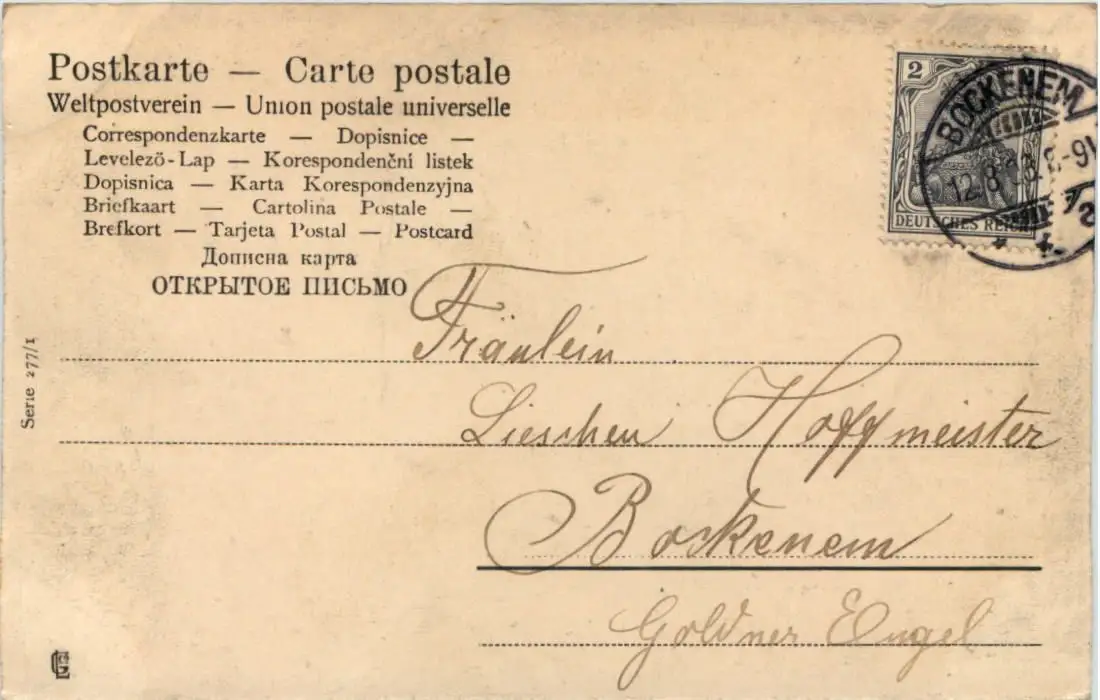 Postkarte — Carte postale
Weltpostverein — Union postale universelle
Correspondenzkarte — Dopisnice —
Levelező-Lap — Korespondenční listek
Dopisnica — Karta Korespondenzyjna
Briefkaart — Cartolina Postale —
Brefkort — Tarjeta Postal — Postcard
Дописна карта
ОТКРЫТОЕ ПИСЬМО
2
DEUTSCHES REICH
BOCKENEM
12.8. 8-9V
Serie 277/1
Fräulein
Lieschen Hoffmeister
Bockenem
Goldner Engel